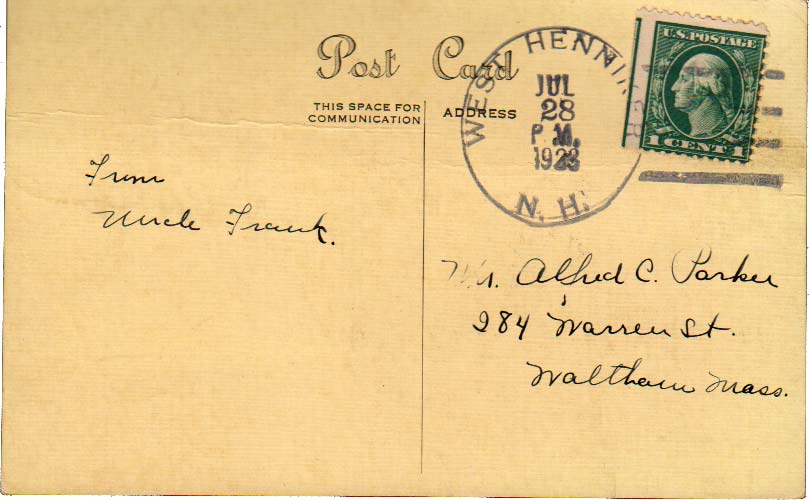 Post Card
THIS SPACE FOR
COMMUNICATION
ADDRESS
WEST HENNIKER
JUL
28
P M.
1923
N. H.
U.S. POSTAGE
1 CENT 1
From
Uncle Frank.
Mr. Alfred C. Parker
284 Warren St.
Waltham Mass.